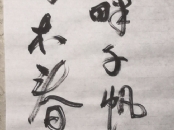 畔千帆
木春